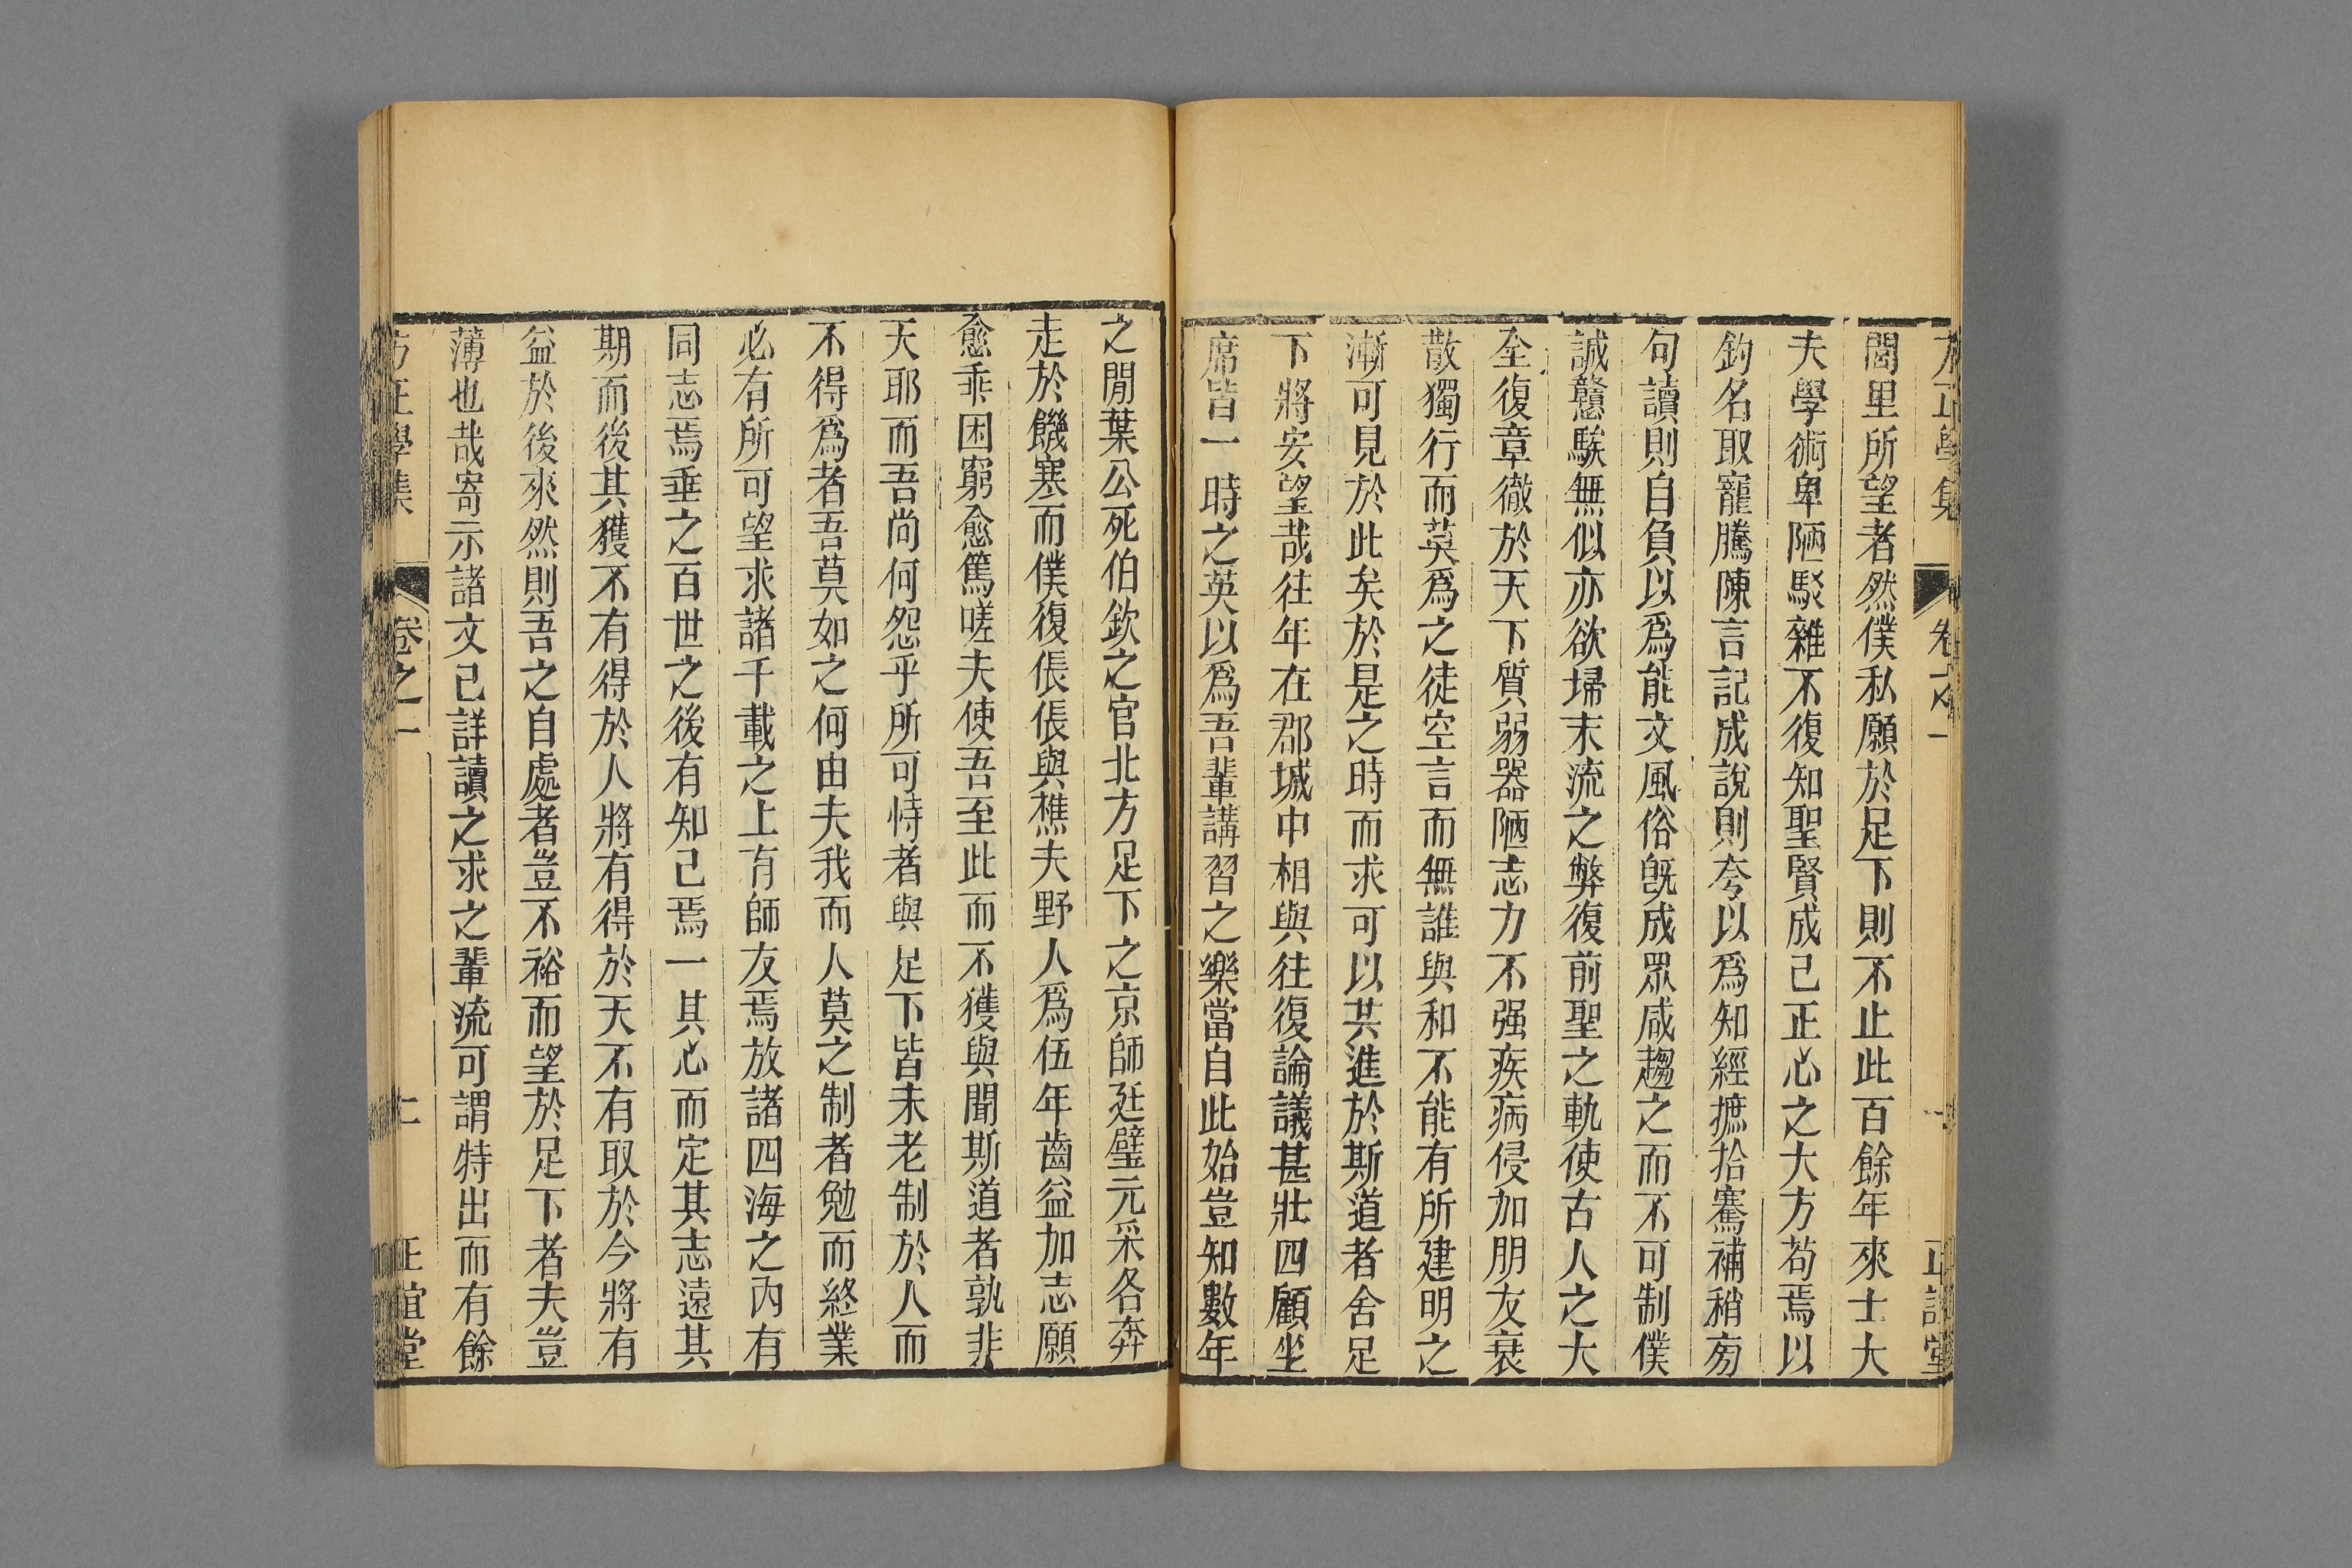 閭里所望者然僕私願於足下則不止此百餘年來士大
夫學術卑陋駁雜不復知聖賢成己正心之大方苟焉以
釣名取寵騰陳言記成說則夸以爲知經摭拾騫補稍有
句讀則自負以爲能文風俗旣成眾咸趨之而不可制僕
誠戇騃無似亦欲埽末流之弊復前聖之軌使古人之大
全復章徹於天下質弱器陋志力不强疾病侵加朋友衰
散獨行而莫爲之徒空言而無誰與和不能有所建明之
漸可見於此矣於是之時而求可以共進於斯道者舍足
下將安望哉往年在郡城中相與往復論議甚壯四顧坐
席皆一時之英以爲吾輩講習之樂當自此始豈知數年
之間葉公死伯欽之官北方足下之京師廷璧元采各奔
走於饑寒而僕復倀倀與樵夫野人爲伍年齒益加志願
愈乖困窮愈篤嗟夫使吾至此而不獲與聞斯道者孰非
天耶而吾尚何怨乎所可恃者與足下皆未老制於人而
不得爲者吾莫如之何由夫我而人莫之制者勉而終業
必有所可望求諸千載之上有師友焉放諸四海之內有
同志焉垂之百世之後有知己焉一其心而定其志遠其
期而後其獲不有得於人將有得於天不有取於今將有
益於後來然則吾之自處者豈不裕而望於足下者夫豈
薄也哉寄示諸文已詳讀之求之輩流可謂特出而有餘
方正學集 卷之一 正誼堂